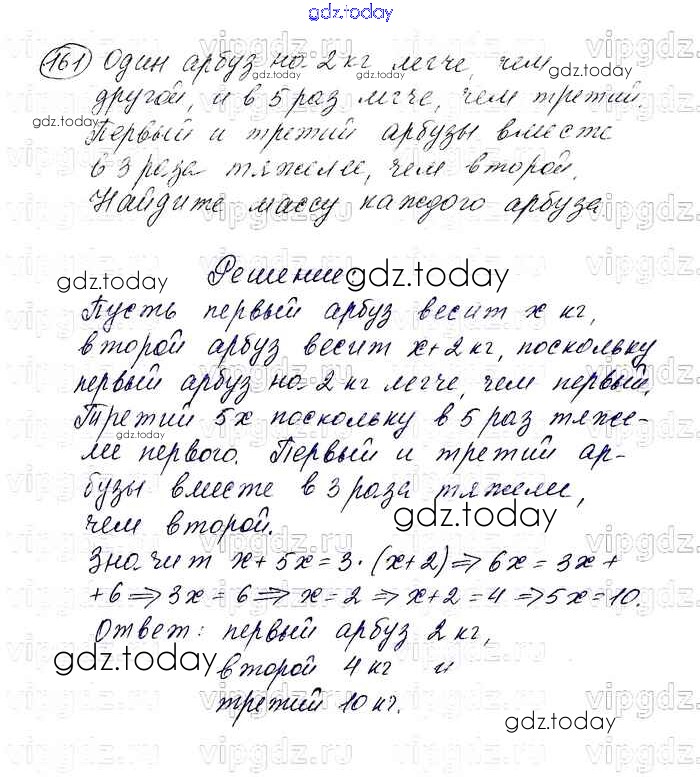 gdz.today
161 Один арбуз на 2 кг легче, чем
другой, и в 5 раз легче, чем третий.
Первый и третий арбузы вместе
в 3 раза тяжелее, чем второй.
Найдите массу каждого арбуза
Решение
Пусть первый арбуз весит х кг,
второй арбуз весит х+2 кг, поскольку
первый арбуз на 2 кг легче, чем первый.
Третий 5х поскольку в 5 раз тяже-
ле первого. Первый и третий ар-
бузы вместе в 3 раза тяжели,
чем второй.
Значит х+5х=3·(х+2)⇒6х=3х+
+6⇒3х=6⇒х=2⇒х+2=4⇒5х=10.
Ответ: первый арбуз 2 кг,
второй 4 кг и
третий 10 кг.
gdz.today
gdz.today
gdz.today
gdz.today
gdz.today
gdz.today
gdz.today
gdz.today
gdz.today
vipgdz.ru